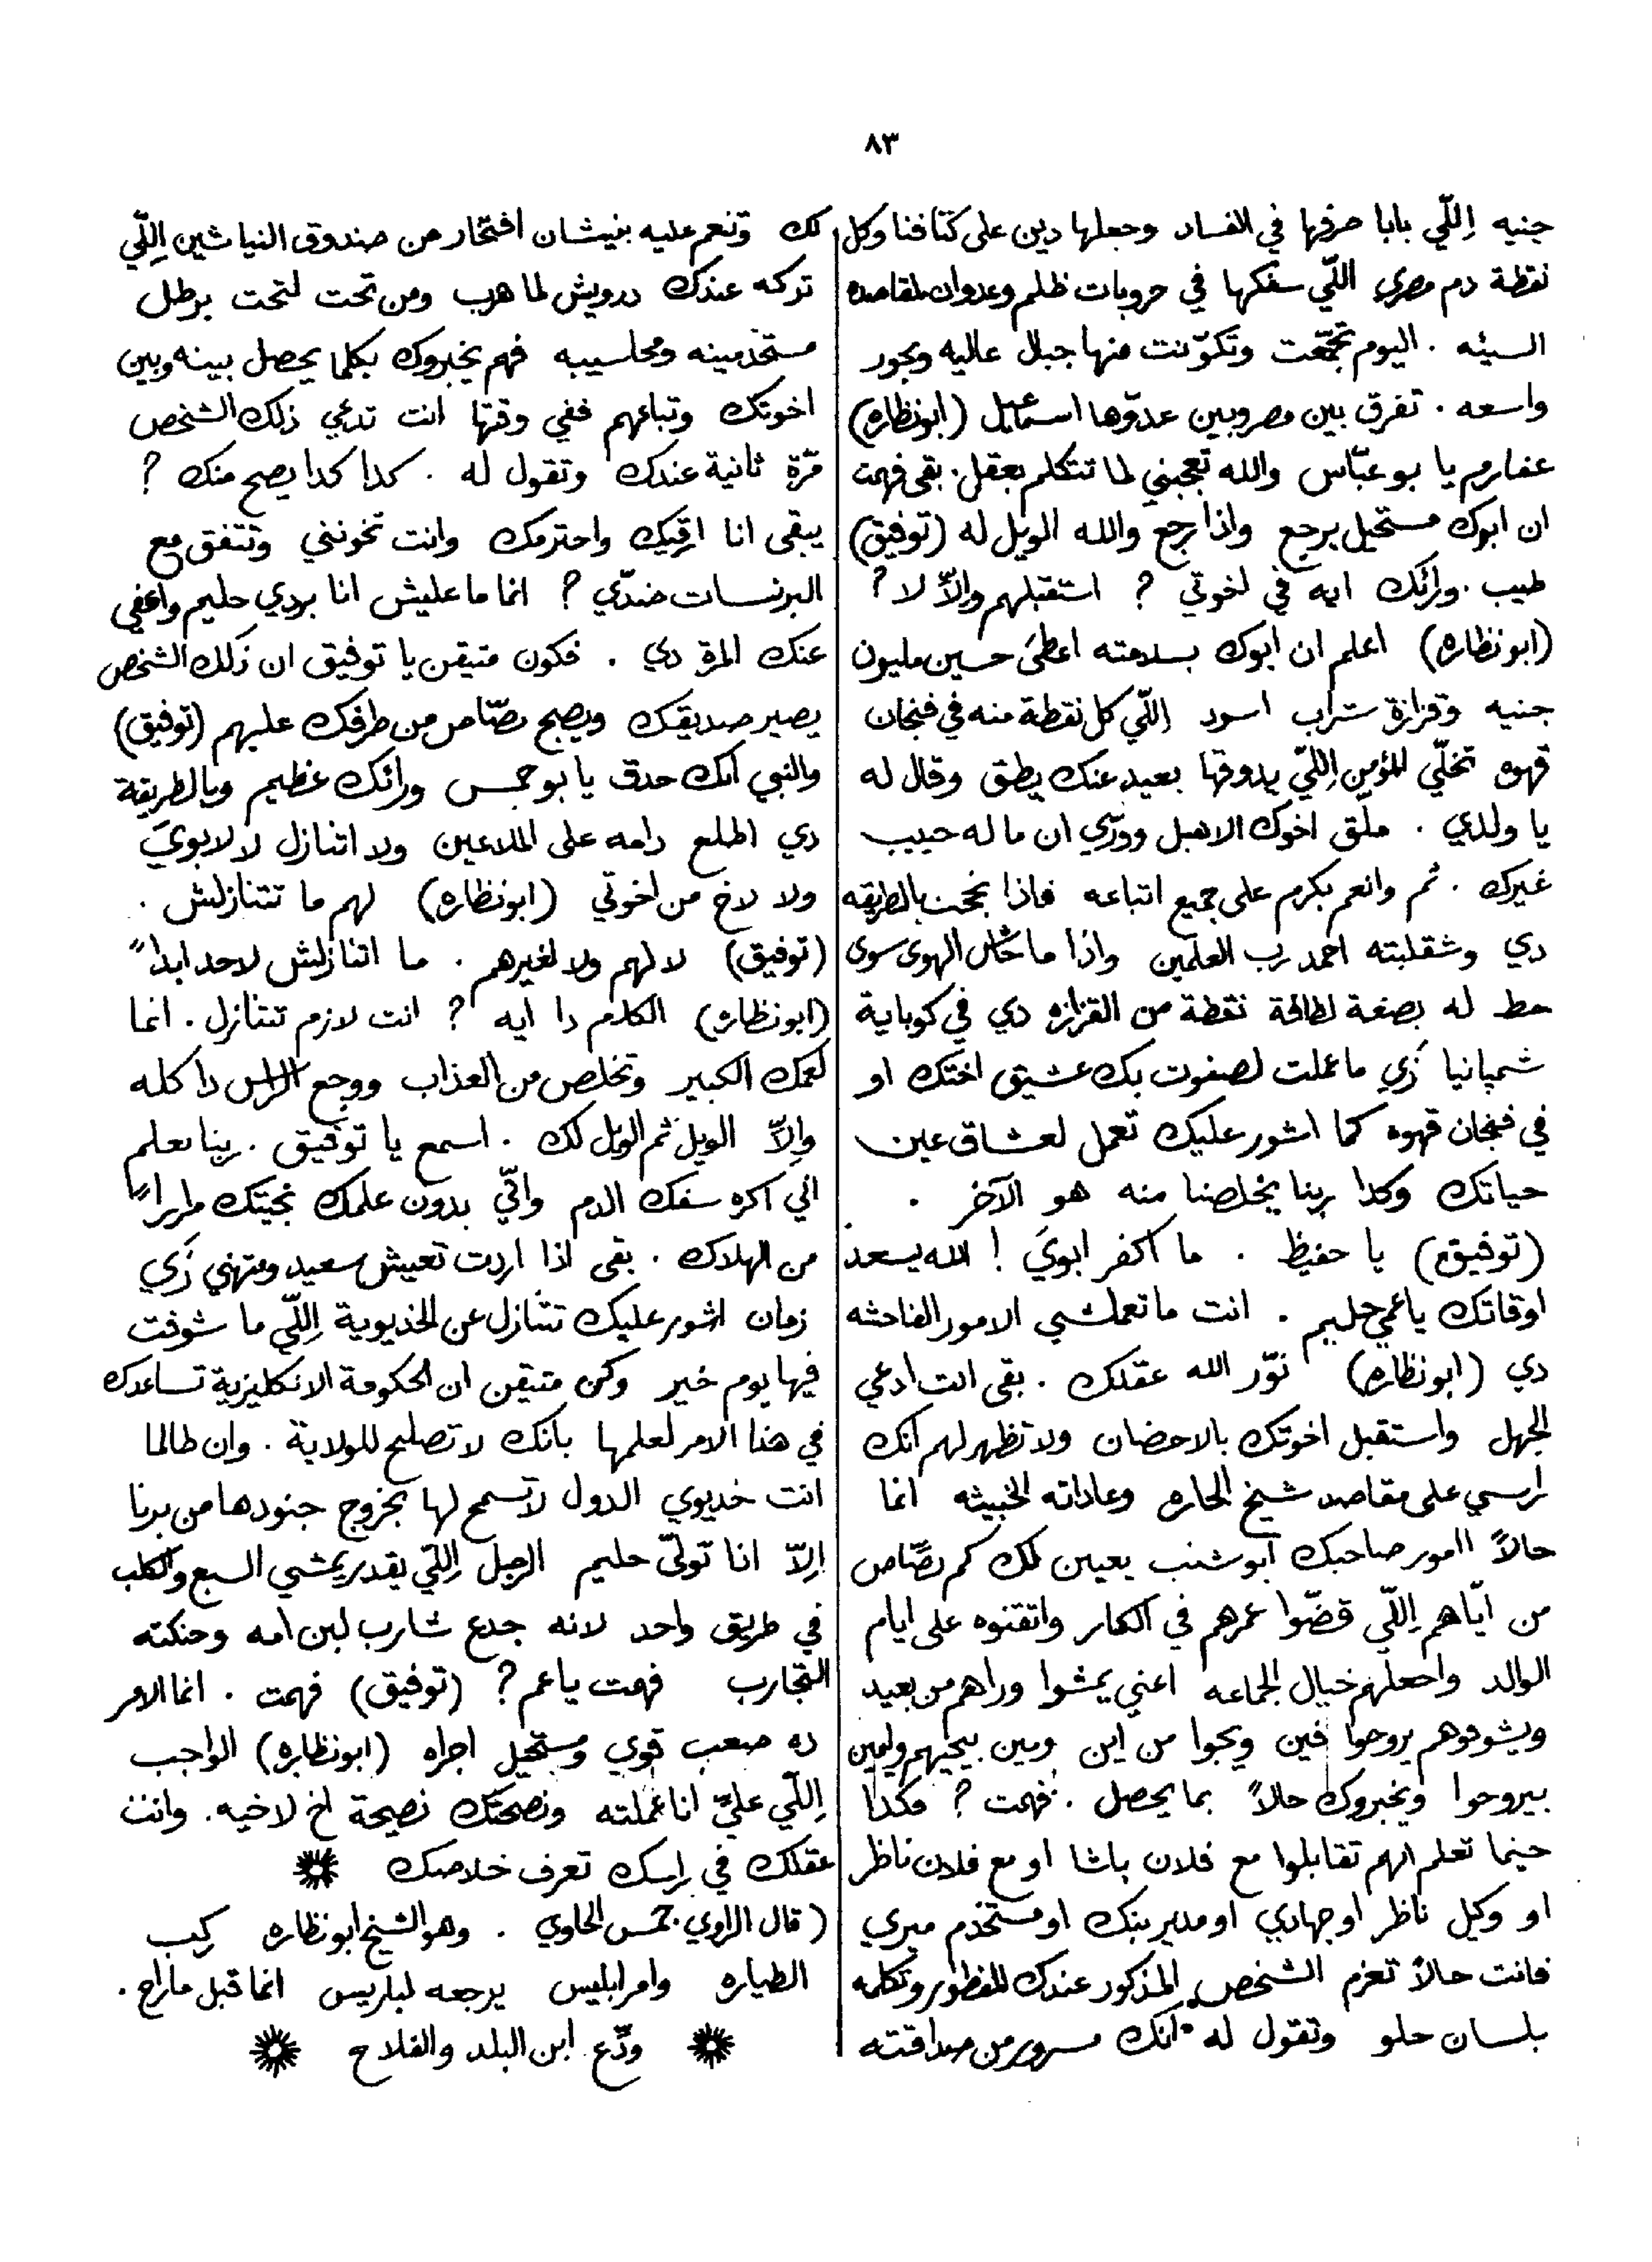 ٨٣
جنيه اِللّي بابا صرفها في الفساد وجعلها دين على كتافنا وكل
نقطة دم مصري اللّي سفكها في حروبات ظلم وعدوان لمقاصده
السيئه . اليوم تجمّعت وتكوّنت منها جبال عاليه وبحور
واسعه . تفرق بين مصر وبين عدوّها اسماعيل (ابونظاره)
عفارم يا بو عبّاس والله تعجبني لما تتكلم بعقل . بقى فهمت
ان ابوك مستحيل يرجع واذا رجع والله الويل له (توفيق)
طيب . ورائك ايه في اخوتي ? استقبلهم والاّ لا ?
(ابونظاره) اعلم ان ابوك بسلامته اعطى حسين مليون
جنيه وقزازة شراب اسود اللّي كل نقطة منه في فنجان
قهوه تخلّي المؤمن اِللّي يدوقها بعيد عنك يطق وقال له
يا ولدي . ملّق اخوك الاهبل وورّي ان ما له حبيب
غيرك . ثم وانعم بكرم على جميع اتباعه فاذا نجحت بالطريقه
دي وشقلبته احمد رب العلمين واذا ما خاش الهوى سوى
حط له بصفة لطافة نقطة من القزازه دي في كوباية
شمپانيا زَي ما عملت لصفوت بك عشيق اختك او
في فنجان قهوه كما اشور عليك تعمل لعشاق عين
حياتك وكدا ربنا يخلصنا منه هو الآخر .
(توفيق) يا حفيظ . ما اكفر ابويَ ! الله يسعد
اوقاتك يا عمي حليم . انت ما تعملشي الامور الفاحشه
دي (ابونظاره) نوّر الله عقلك . بقى انت ادعي
الجهل واستقبل اخوتك بالاحضان ولا تظهر لهم انك
راسي على مقاصد شيخ الحاره وعاداته الخبيثه انما
حالاً اامور صاحبك ابو شنب يعين لك كم بصّاص
من ايّاهم اِللّي قضّوا عمرهم في الكار واتقنوه على ايام
الوالد واجعلهم خيال الجماعه اعني يمشوا وراهم من بعيد
ويشوفوهم يروحوا فين ويجوا من اين ومين بيجيهم ولمين
بيروحوا ويخبروك حالاً بما يحصل . فهمت ? هكدا
حينما تعلم انهم تقابلوا مع فلان باشا او مع فلان ناظر
او وكيل ناظر او جهادي او مدير بنك او مستخدم ميري
فانت حالاً تعزم الشخص المذكور عندك للفطور وتكلمه
بلسان حلو وتقول له انك مسرور من صداقته
لك وتنعم عليه بنيشان افتخار من صندوق النياشين اِللّي
تركه عندك درويش لما هرب ومن تحت لتحت برطل
مستخدمينه ومحاسيبه فهم يخبروك بكلما يحصل بينه وبين
اخوتك وتباعهم ففي وقتها انت تدعي ذلك الشخص
مرّة ثانية عندك وتقول له . كدا كدا يصح منك ?
يبقى انا ارقيك واحترمك وانت تخونني وتتفق مع
البرنسات ضدّي ? انما ما عليش انا بردي حليم واعفي
عنك المرة دي . فكون متيقن يا توفيق ان ذلك الشخص
يصير صديقك ويصبح بصّاص من طرفك عليهم (توفيق)
والنبي انك حدق يا بو جمس ورائك عظيم وبالطريقة
دي اطلع رامه على الملاعين ولا اتنازل لا لابويَ
ولا لاخ من اخوتي (ابونظاره) لهم ما تتنازلش .
(توفيق) لا لهم ولا لغيرهم . ما اتنازلش لاحد ابداً
(ابونظاره) الكلام دا ايه ? انت لازم تتنازل . انما
لعمك الكبير وتخلص من العذاب ووجع الراس دا كله
وِالاّ الويل ثم الويل لك . اسمع يا توفيق . ربنا يعلم
اني اكره سفك الدم واني بدون علمك نجيتك مراراً
من الهلاك . بقى اذا اردت تعيش سعيد ومتهني زَي
زمان اشور عليك تتنازل عن الخديوية اِللّي ما شوفت
فيها يوم خير وكن متيقن ان الحكومة الانكليزية تساعدك
في هذا الامر لعلمها بانك لا تصلح للولاية . وان طالما
انت خديوي الدول لا تسمح لها بخروج جنودها من برنا
اِلاّ اذا تولّى حليم الرجل اِللّي يقدر يمشي السبع والكلب
في طريق واحد لانه جدع شارب لبن امه وحنكته
التجارب فهمت يا عم ? (توفيق) فهمت . انما الامر
ده صعب قوي ومستحيل اجراه (ابونظاره) الواجب
اِللّي عليّ انا عملته ونصحتك نصيحة اخ لاخيه . وانت
عقلك في راسك تعرف خلاصك
( قال الراوي جمس الحاوي . وهو الشيخ ابونظاره ركب
الطياره وامر ابليس يرجعه لباريس انما قبل ما راح .
ودّع ابن البلد والفلاح